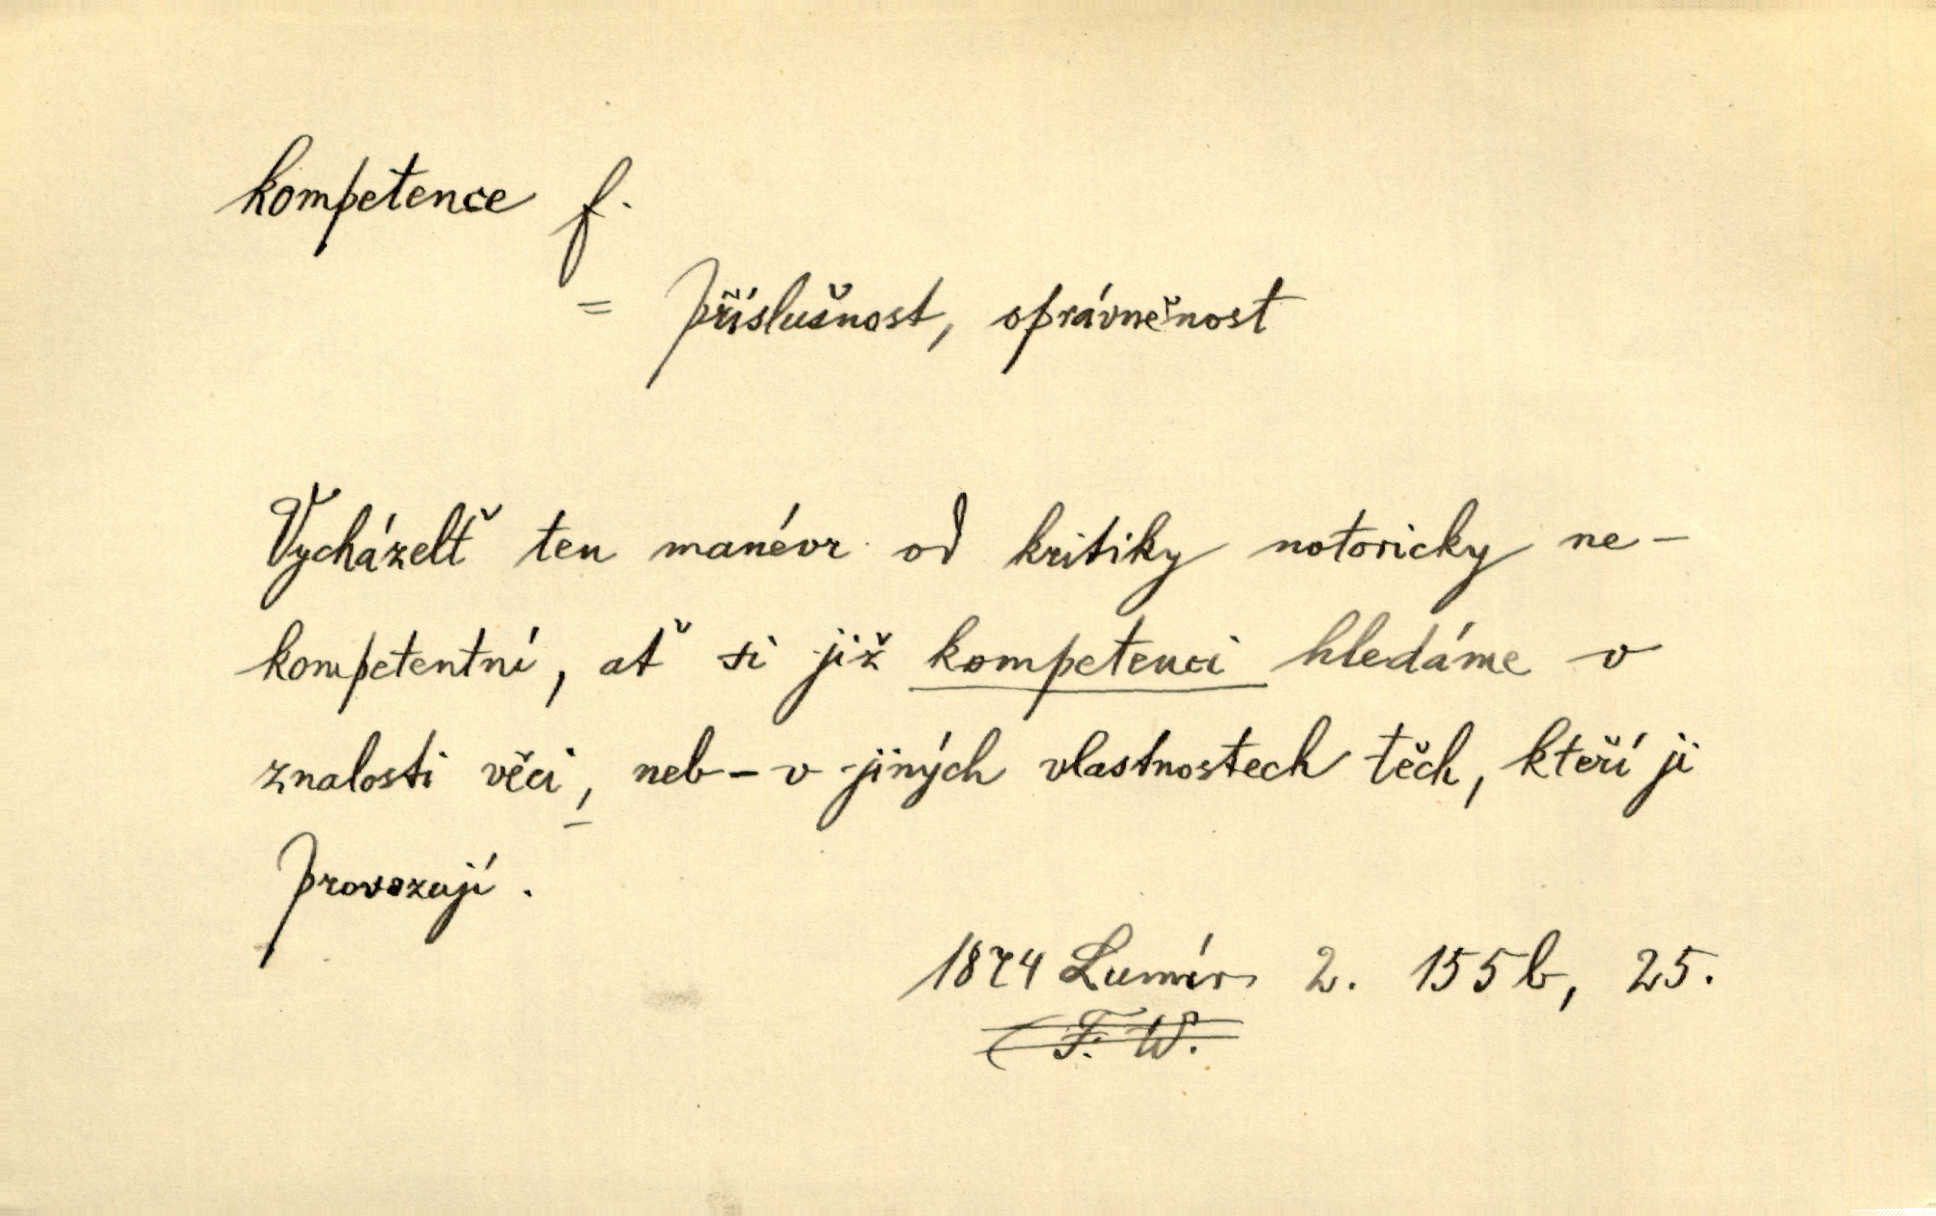 kompetence f.
= příslušnost, oprávněnost
Vycházelť ten manévr od kritiky notoricky ne-
kompetentní, ať si již kompetenci hledáme v
znalosti věci, neb - v jiných vlastnostech těch, kteří ji
provozují.
1874 Lumír 2. 155b, 25.
(F. W.